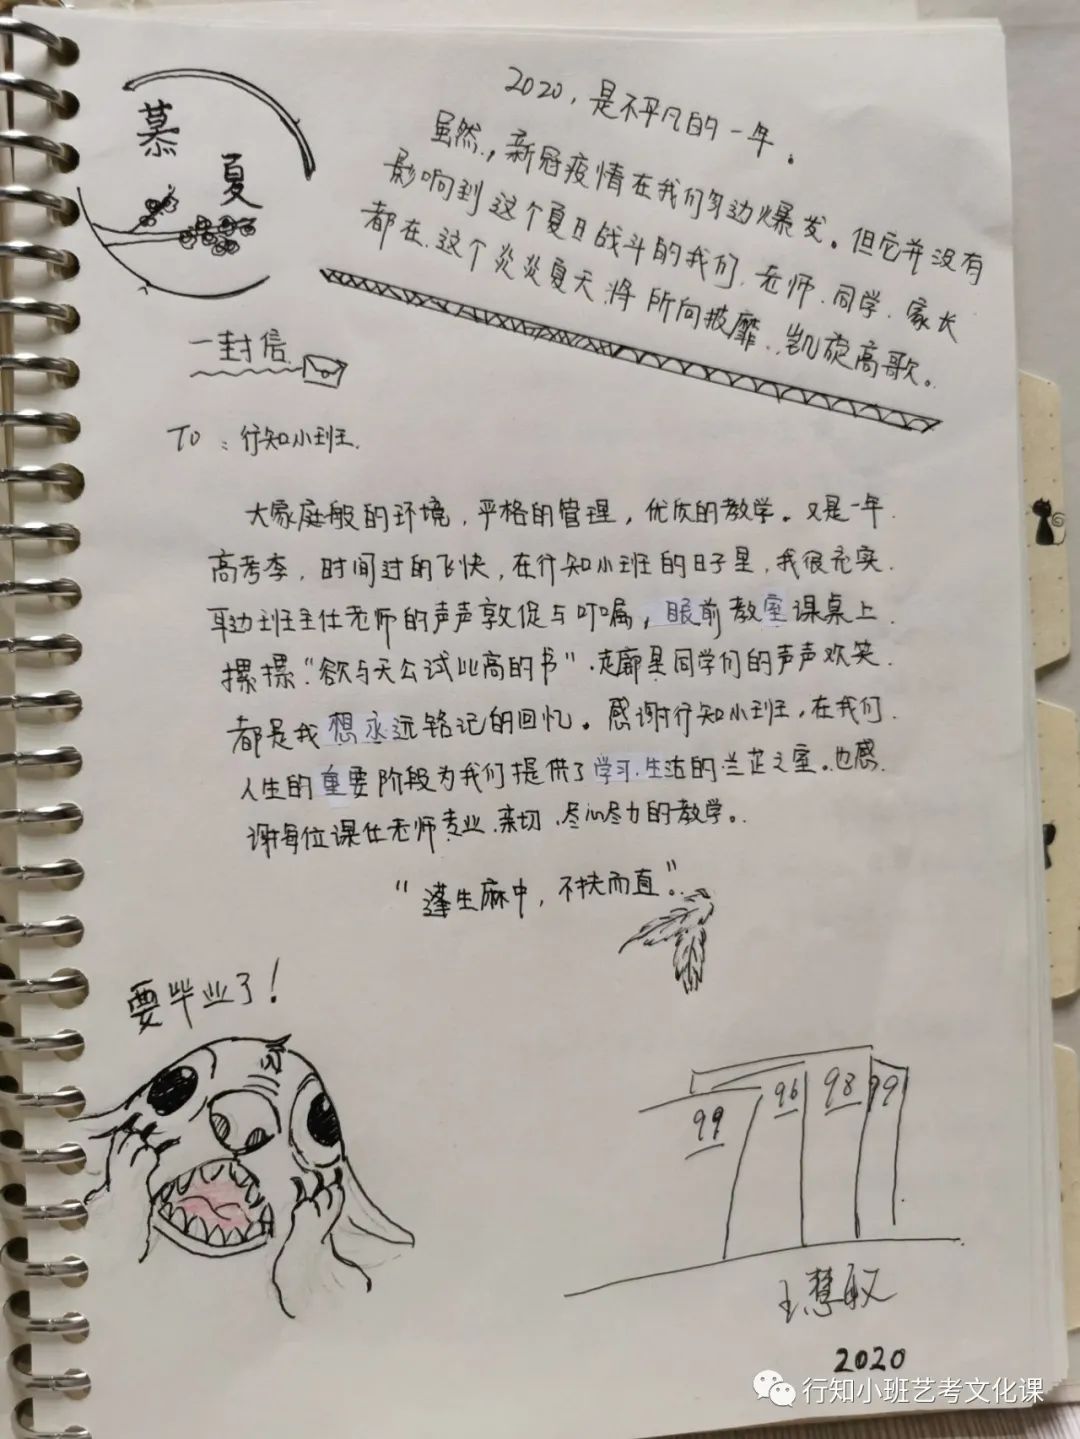 慕
夏
2020，是不平凡的一年。
虽然，新冠疫情在我们身边爆发。但它并没有
影响到这个夏日战斗的我们，老师、同学、家长
都在这个炎炎夏天将所向披靡，凯旋高歌。
一封信
TO：行知小班.
大家庭般的环境，严格的管理，优质的教学。又是一年
高考季，时间过的飞快，在行知小班的日子里，我很充实.
耳边班主任老师的声声敦促与叮嘱，眼前教室课桌上
摞摞“欲与天公试比高的书”，走廊里同学们的声声欢笑
都是我想永远铭记的回忆。感谢行知小班，在我们
人生的重要阶段为我们提供了学习、生活的兰芷之室。也感
谢每位课任老师专业、亲切、尽心尽力的教学。
“蓬生麻中，不扶而直”.
要毕业了！
99
96
98
99
王慧敏
2020
行知小班艺考文化课